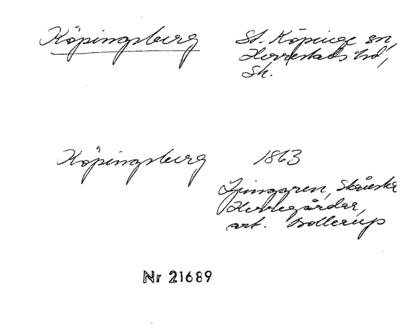 Köpingsberg St. Köpinge sn
Herrestads hd,
Sk.
Köpingsberg 1863
Ljunggren, Skånska
Herregårdar,
art. Bollerup
Nr 21689